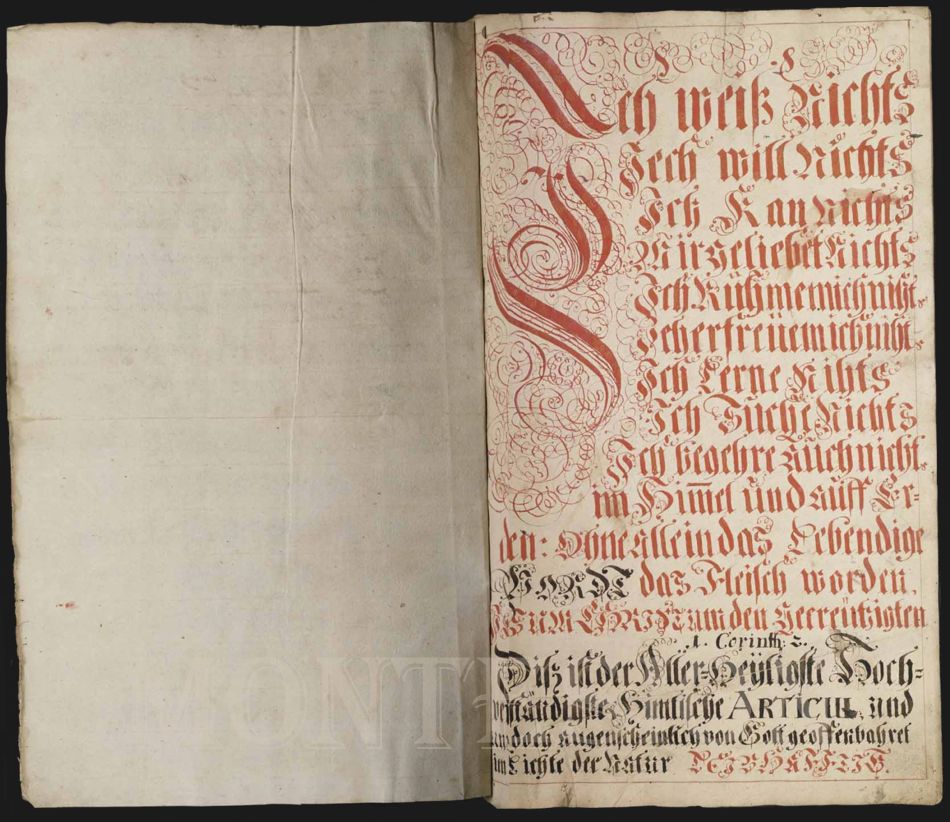 Ich weiß Nichts
Jech will Nichts
Ich Kan Nichts
Mir geliebet Nichts
Ich Rühme mich nicht
Ich erfreüe mich nicht
Ich Lerne Nihts
Ich Suche Nichts
Ich begehre auch nicht
im Him̄el und auff Er=
den: Ohne allein das Lebendige
WORDT das Fleisch worden,
JESUM CHRISTUM den Gecreützigten
1. Corinth: 2.
Diß ist der Aller-Heÿligste Hoch=
verständigste Himlische ARTICUL, und
doch augenscheinlich von Gott geoffenbahret
im Liechte der Natur LEIBHAFFTIG.
MONTH